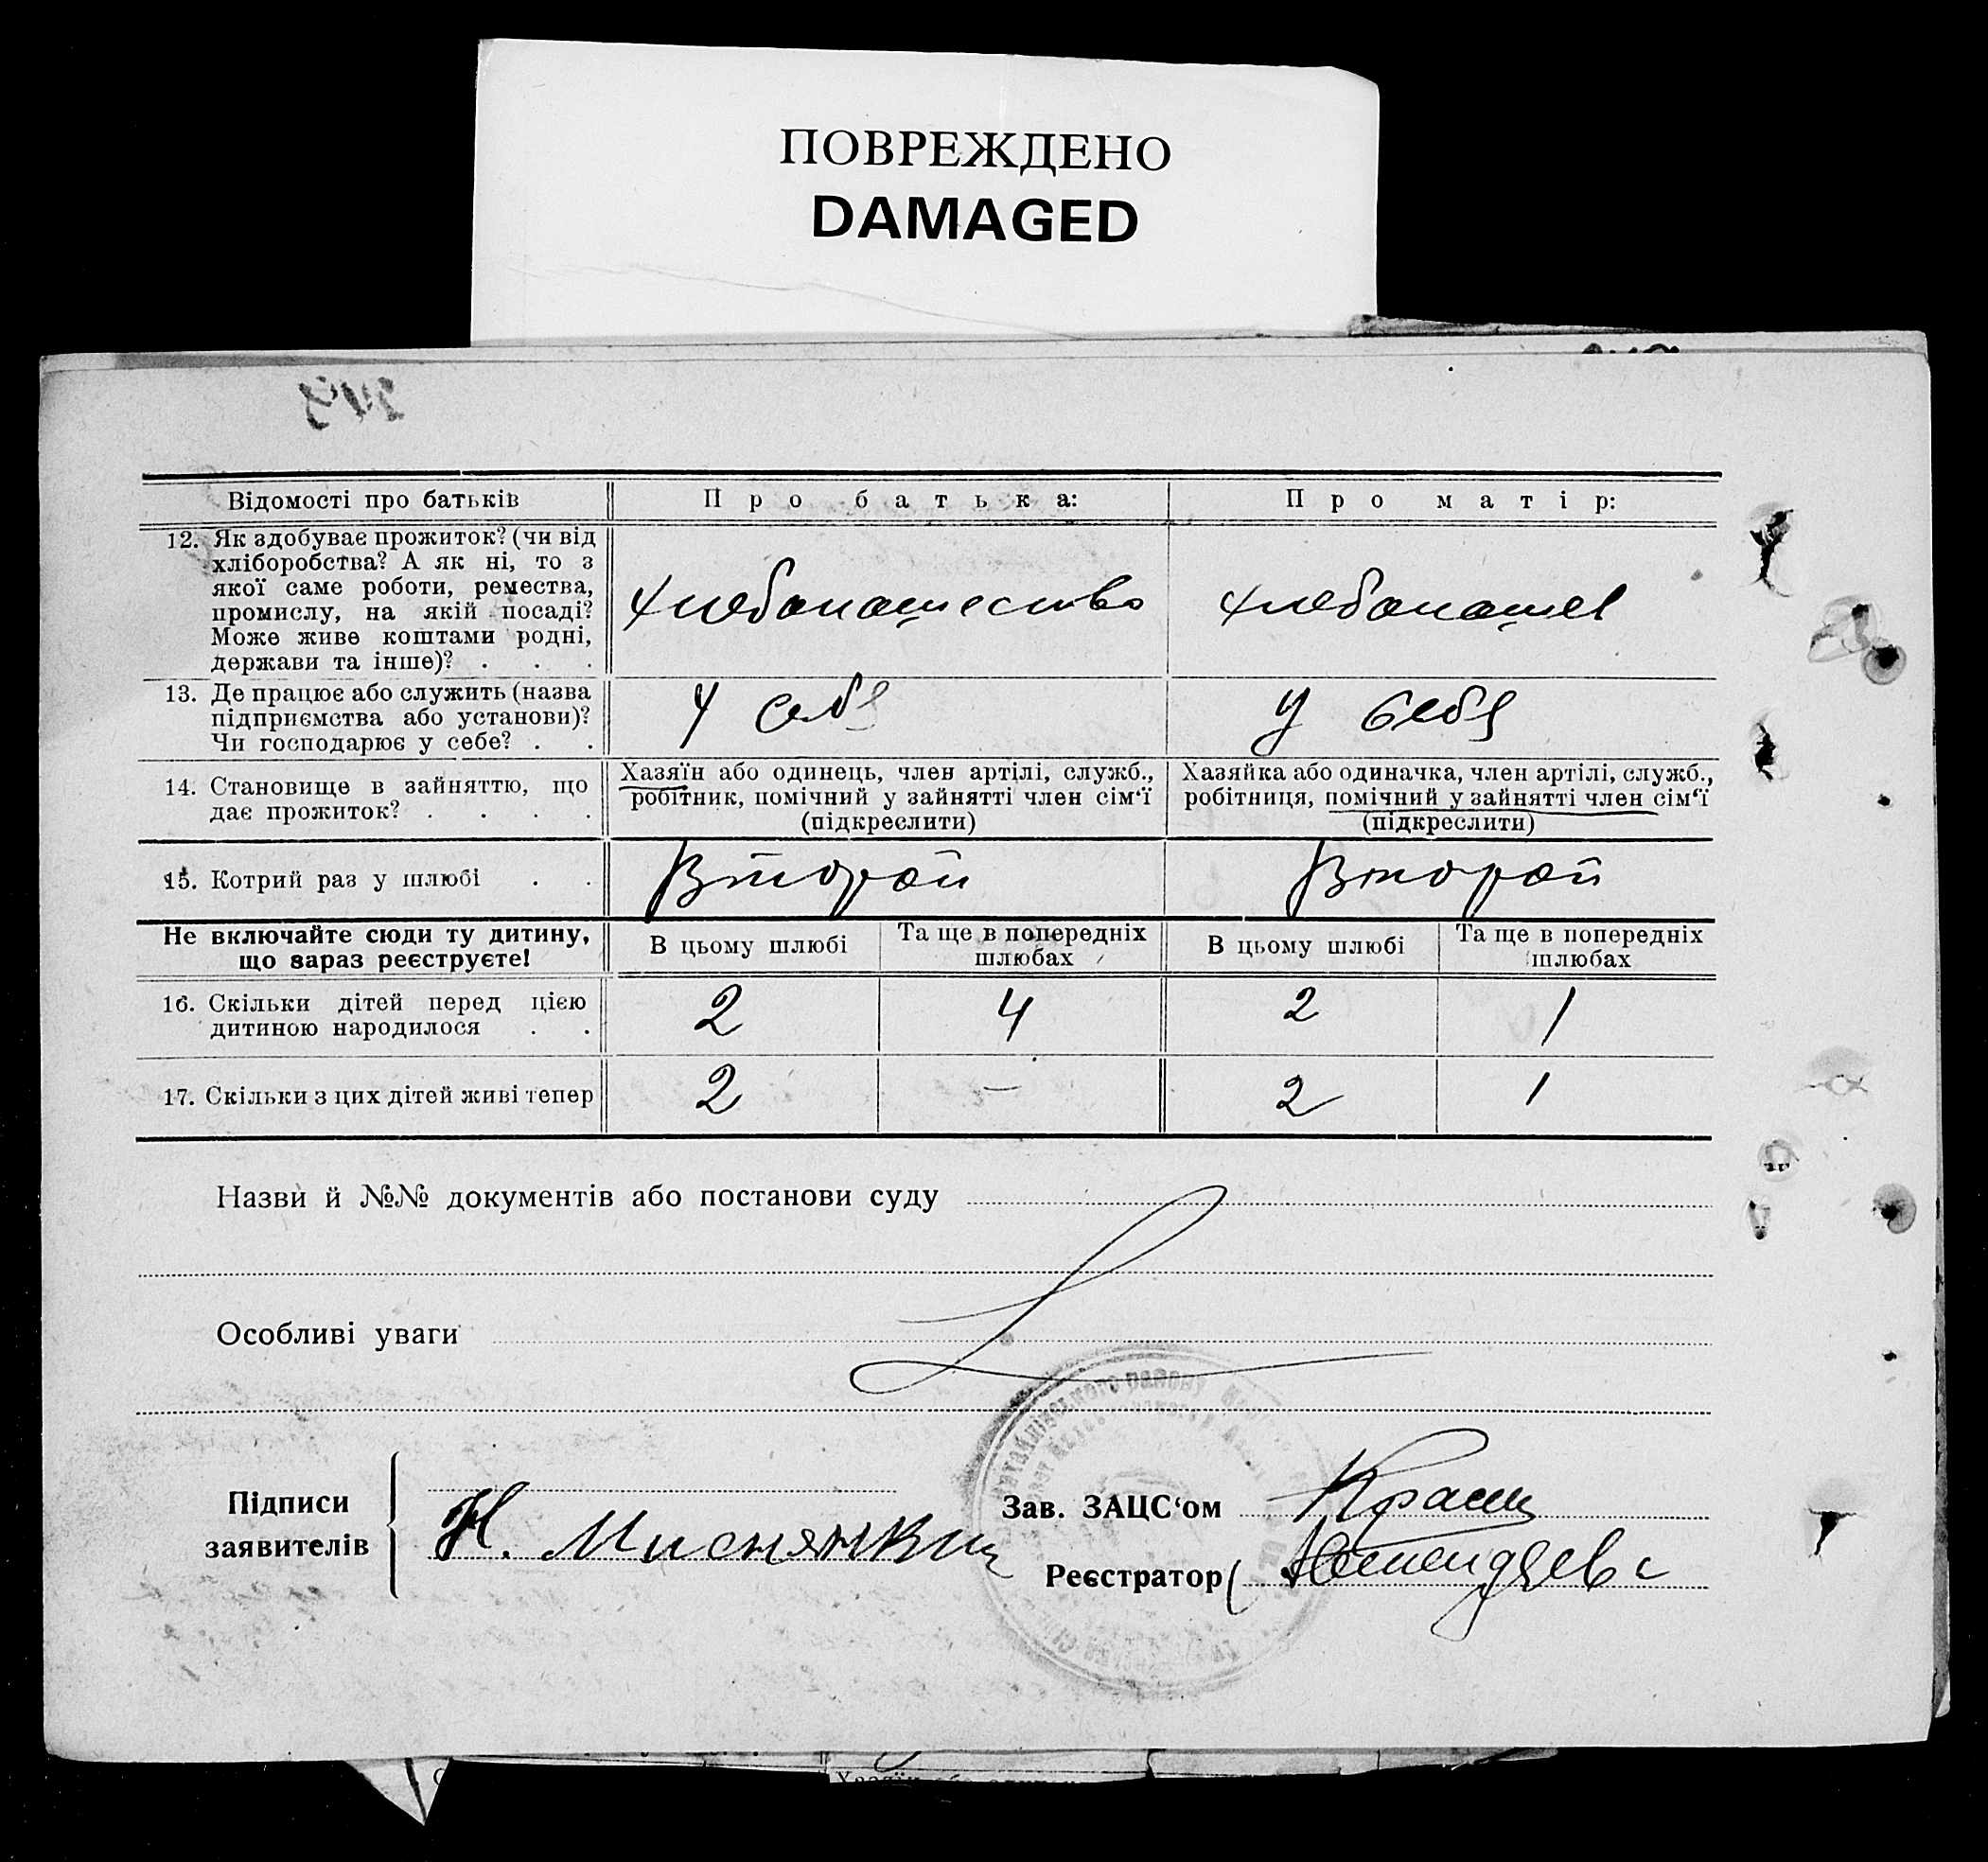 ПОВРЕЖДЕНО
DAMAGED
Відомості про батьків
Про батька:
Про матір:
12. Як здобуває прожиток? (чи від
хліборобства? А як ні, то з
якої саме роботи, ремества,
промислу, на якій посаді?
Може живе коштами родні,
держави та інше)? . . .
хлебопашество
хлебопашес
13. Де працює або служить (назва
підприємства або установи)?
Чи господарює у себе? . .
У себя
У себя
14. Становище в зайняттю, що
дає прожиток? . . . .
Хазяїн або одинець, член артілі, служб.,
робітник, помічний у зайнятті член сім‘ї
(підкреслити)
Хазяйка або одиначка, член артілі, служб.,
робітниця, помічний у зайнятті член сім‘ї
(підкреслити)
15. Котрий раз у шлюбі . .
Второй
Второй
Не включайте сюди ту дитину,
що зараз реєструєте!
В цьому шлюбі
Та ще в попередніх
шлюбах
В цьому шлюбі
Та ще в попередніх
шлюбах
16. Скільки дітей перед цією
дитиною народилося . .
2
4
2
1
17. Скільки з цих дітей живі тепер
2
—
2
1
Назви й №№ документів або постанови суду
Особливі уваги
Підписи
заявителів
Н.
Зав. ЗАЦС‘ом
Реєстратор